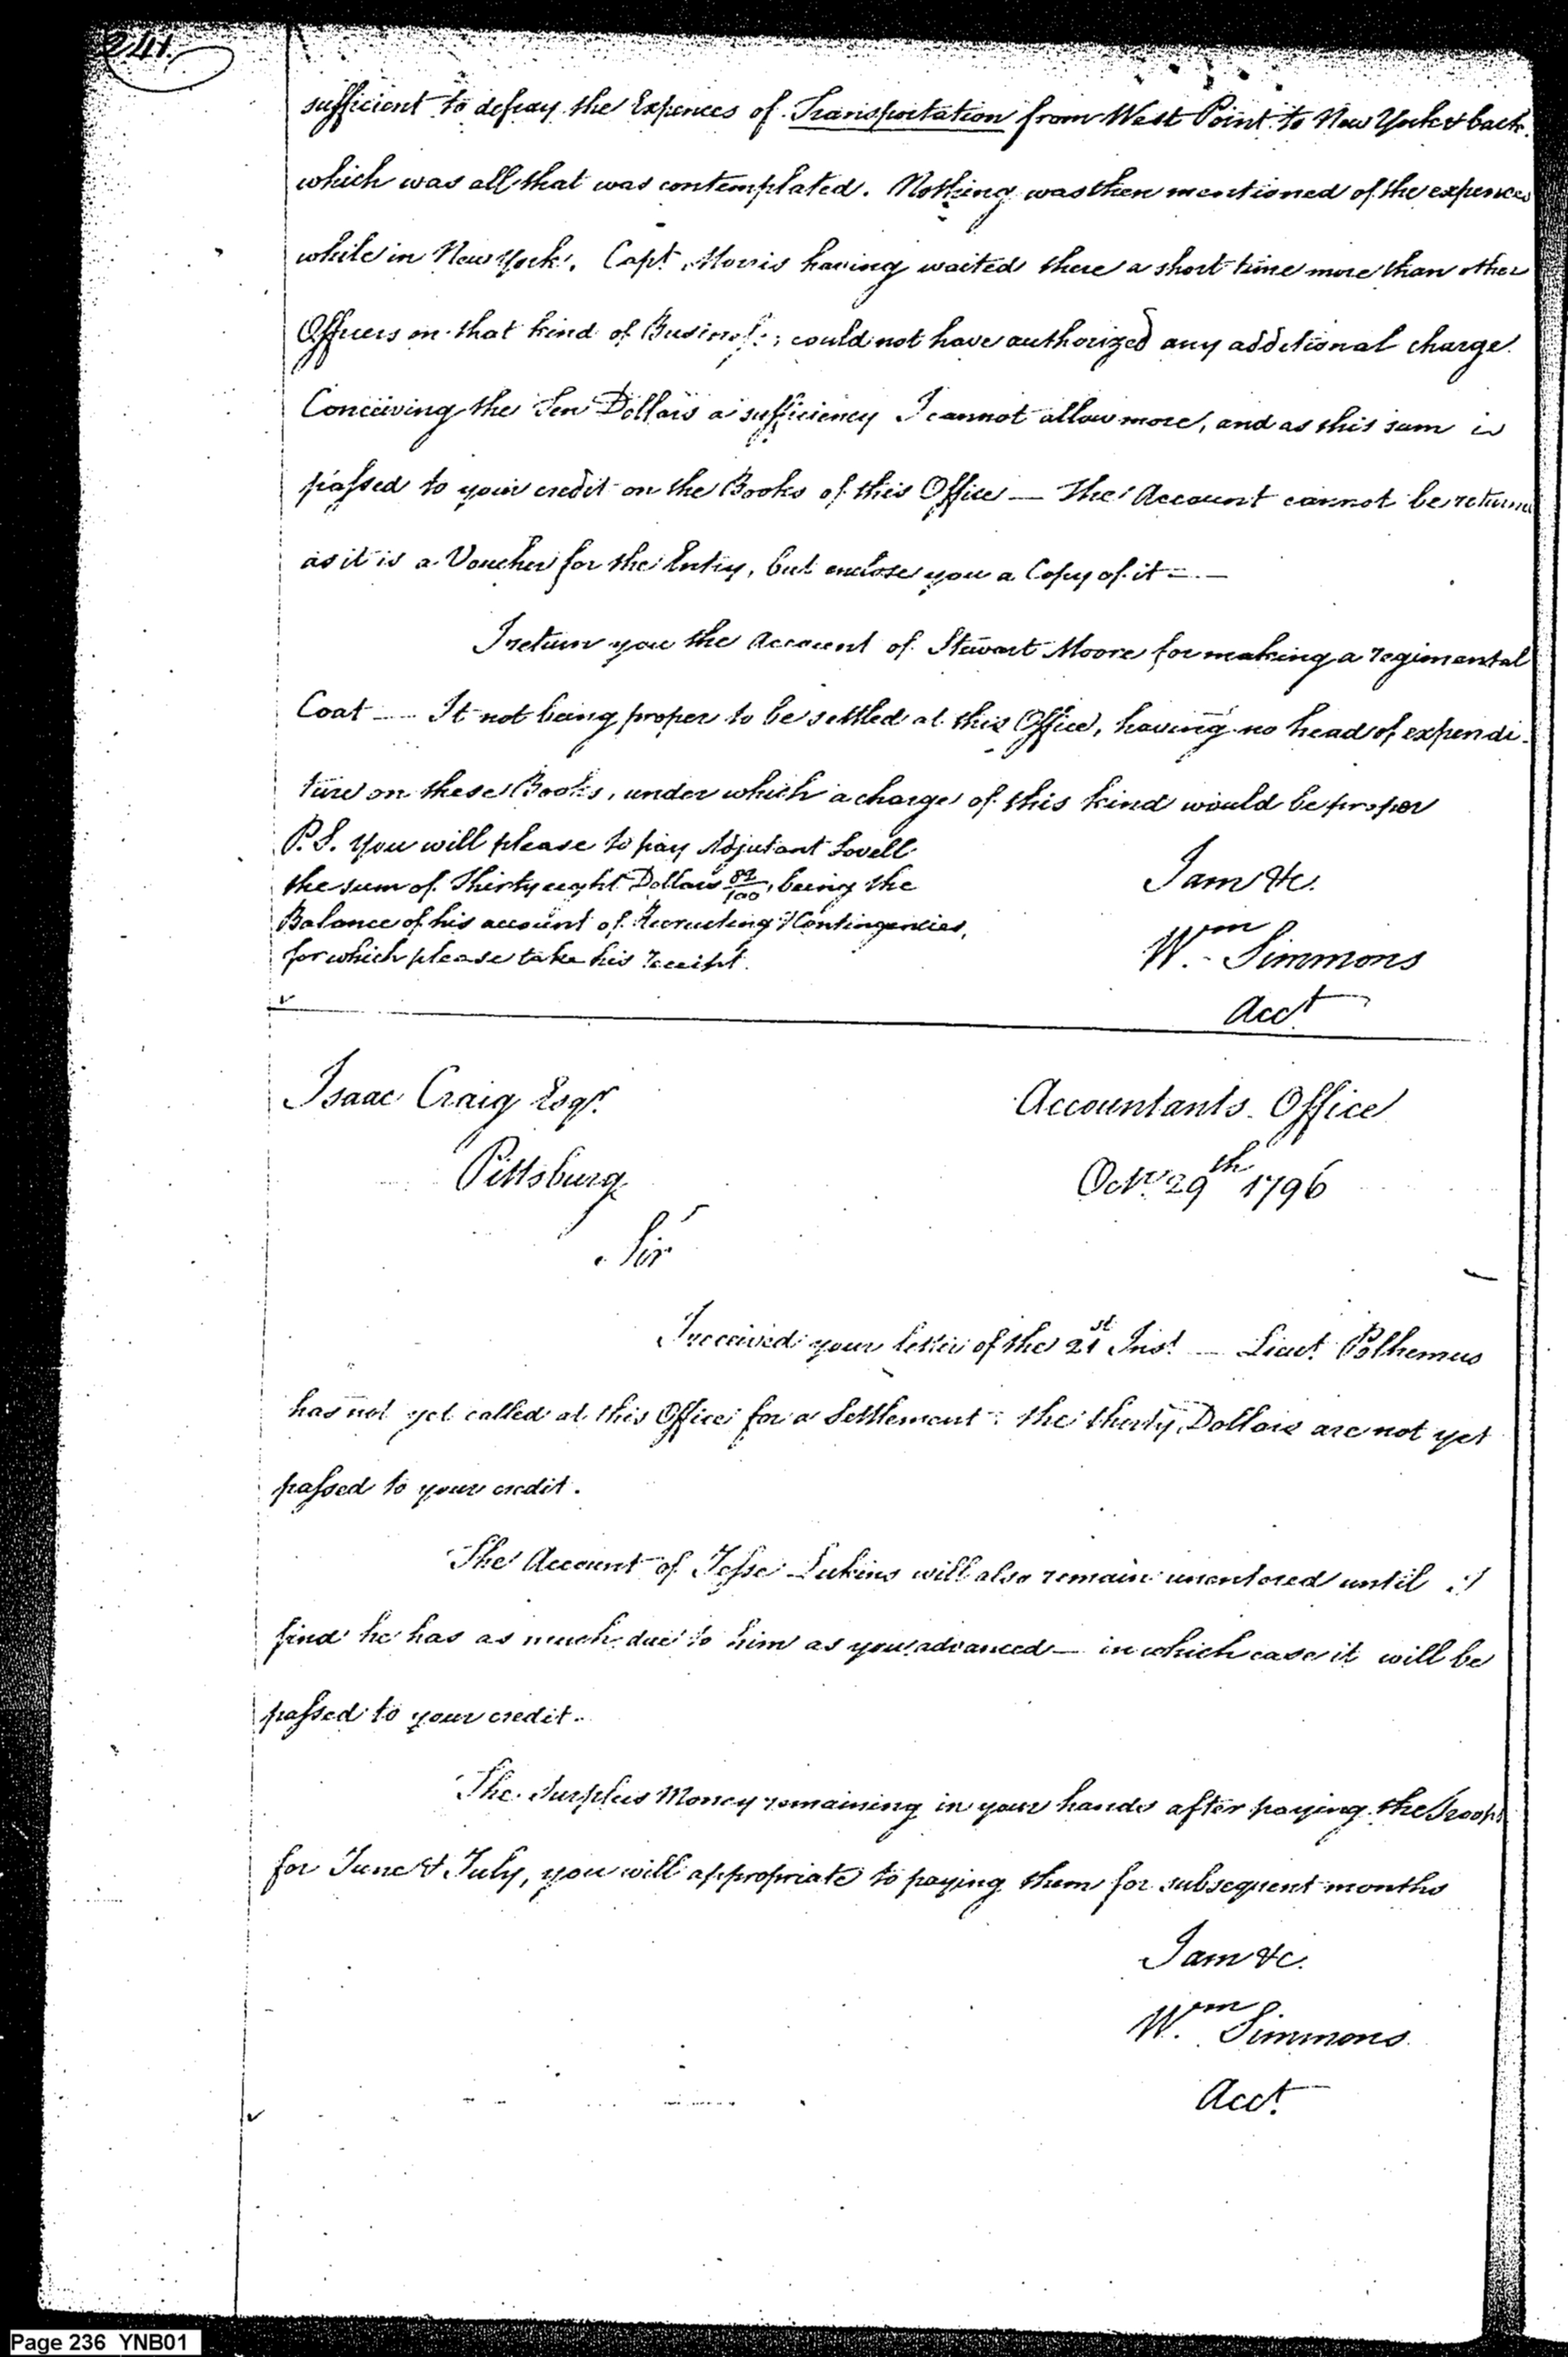 241.
sufficient to defray the Expences of Transportation from West Point to New York & back.
which was all that was contemplated. Nothing was then mentioned of the expences
while in New York. Capt. Morris having waited there a short time more than other
Officers on that kind of Business; could not have authorized any additional charge.
Conceiving the Ten Dollars a sufficiency I cannot allow more, and as this sum is
passed to your credit on the Books of this Office — The Account cannot be returned
as it is a Voucher for the Entry, but enclose you a Copy of it —
I return you the Account of Stewart Moore for making a regimental
Coat — It not being proper to be settled at this Office, having no head of expendi-
ture on these Books, under which a charge of this kind would be proper
P.S. You will please to pay Adjutant Lovell
the sum of Thirty eight Dollars 82/100, being the
Balance of his account of Recruiting & Contingencies,
for which please take his receipt.
I am &c.
Wm Simmons
Acct.
Isaac Craig Esqr.
Accountants Office
Pittsburg
Octr. 29th 1796
Sir
I received your letter of the 21st Inst. — Lieut. Polhemus
has not yet called at this Office for a Settlement: the thirty Dollars are not yet
passed to your credit.
The Account of Jesse Lukins will also remain unentered until I
find he has as much due to him as you advanced — in which case it will be
passed to your credit.
The Surplus Money remaining in your hands after paying the Troops
for June & July, you will appropriate to paying them for subsequent months
I am &c.
Wm Simmons
Acct.
Page 236 YNB01